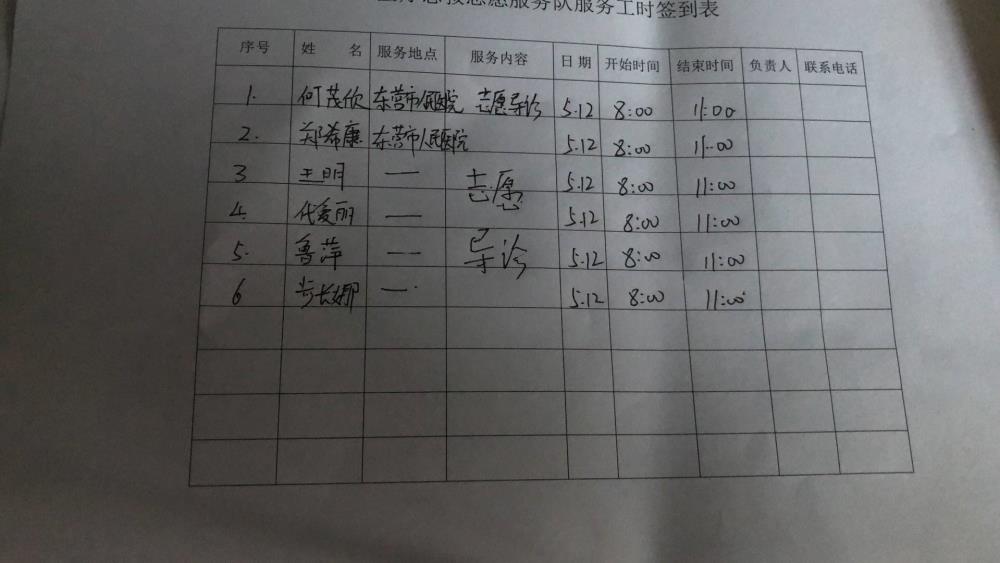 志愿服务队服务工时签到表
序号 姓 名 服务地点 服务内容 日期 开始时间 结束时间 负责人 联系电话
1. 何茂欣 东营市人民医院 志愿导诊 5.12 8:00 11:00
2. 郑希廉 东营市人民医院 5.12 8:00 11:00
3 王明 — 志愿 5.12 8:00 11:00
4. 代爱丽 — 5.12 8:00 11:00
5. 鲁萍 — 导诊 5.12 8:00 11:00
6 步长娜 — 5.12 8:00 11:00